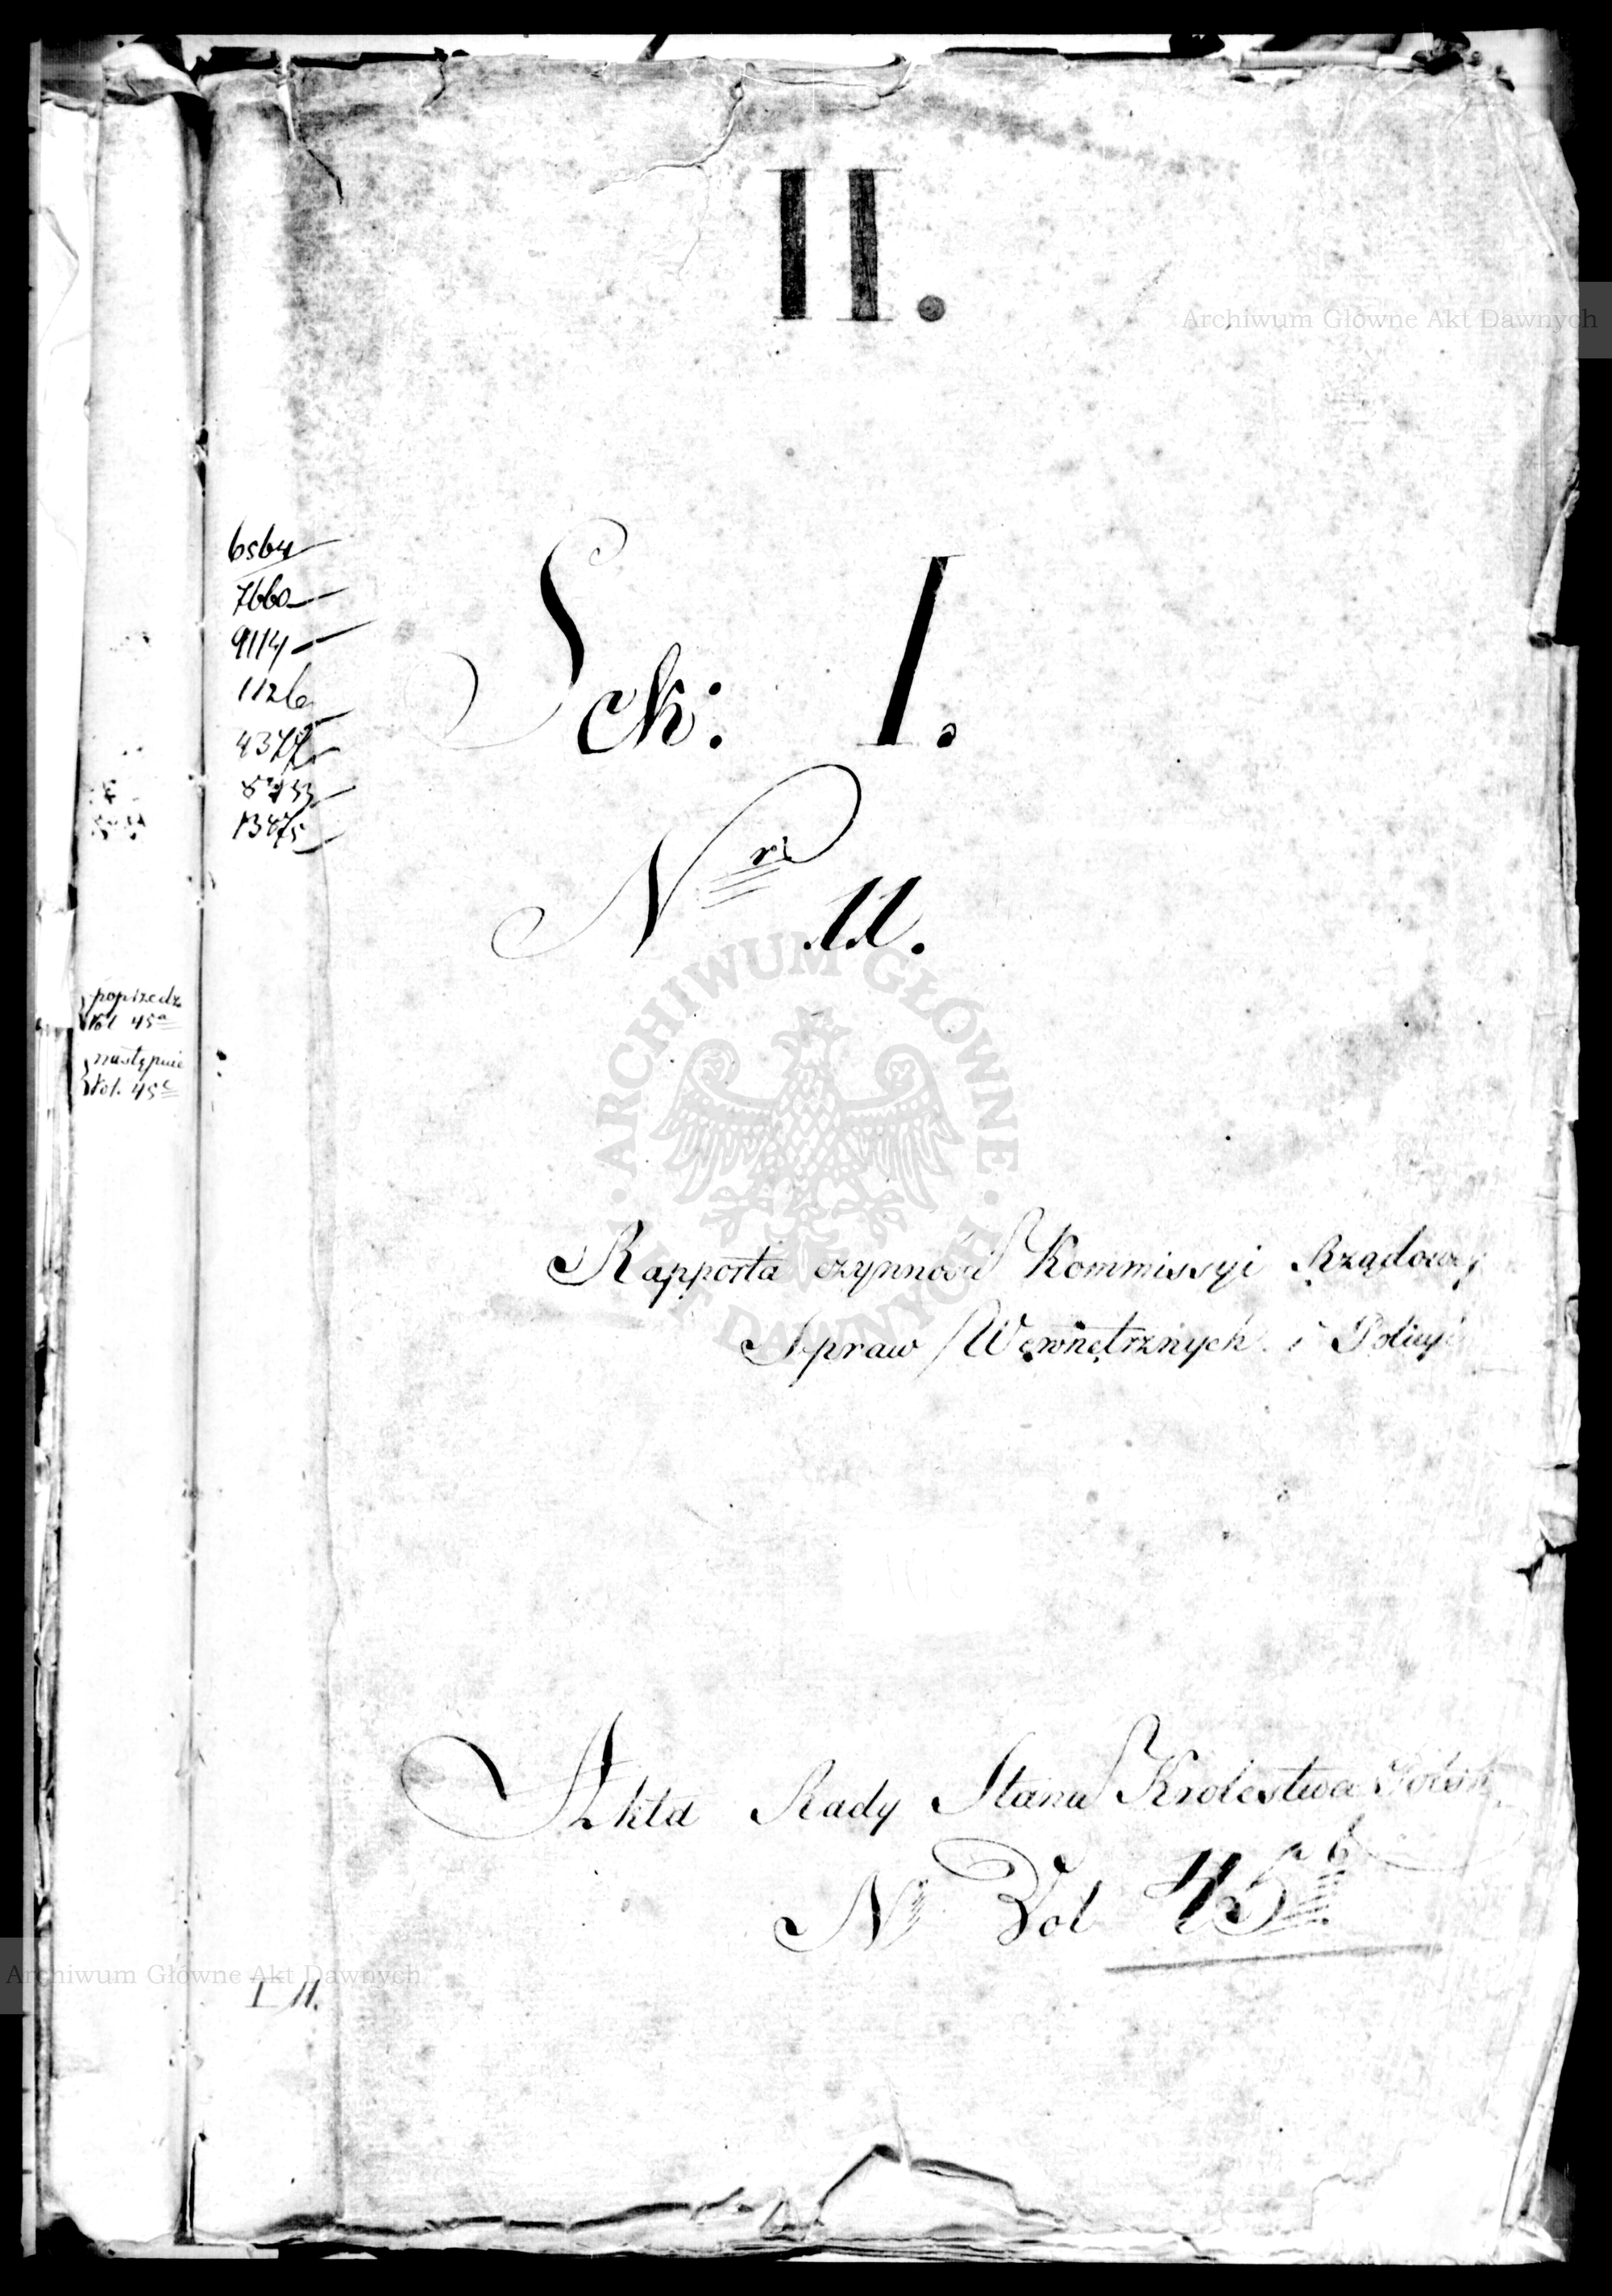 II.
Archiwum Główne Akt Dawnych
6564
7660
9114
1126
4377
13475
Sek: I.
Nr 11.
poprzedz
Vol 45a
następnie
Vol. 45c
ARCHIWUM GŁÓWNE AKT DAWNYCH
Rapporta czynności Kommissyi Rządowej
Spraw Wewnętrznych i Policyi
Akta Rady Stanu Krolestwa Polsk
N Vol 45b
Archiwum Główne Akt Dawnych
I 11.